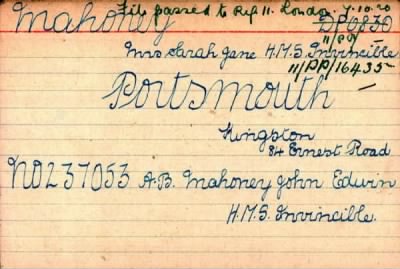 File passed to Ref 11. London. 7.10.20
Mahoney DP0830
11/PP
Mrs Sarah Jane H.M.S. Invincible
11/PP/16435
Portsmouth
Kingston
84 Ernest Road
NO237053 A.B. Mahoney John Edwin
H.M.S. Invincible.